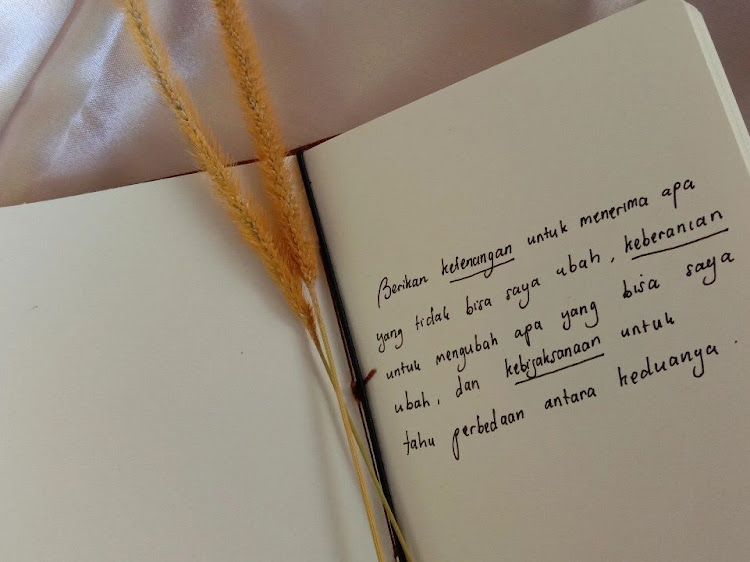 Berikan ketenangan untuk menerima apa
yang tidak bisa saya ubah, keberanian
untuk mengubah apa yang bisa saya
ubah, dan kebijaksanaan untuk
tahu perbedaan antara keduanya.